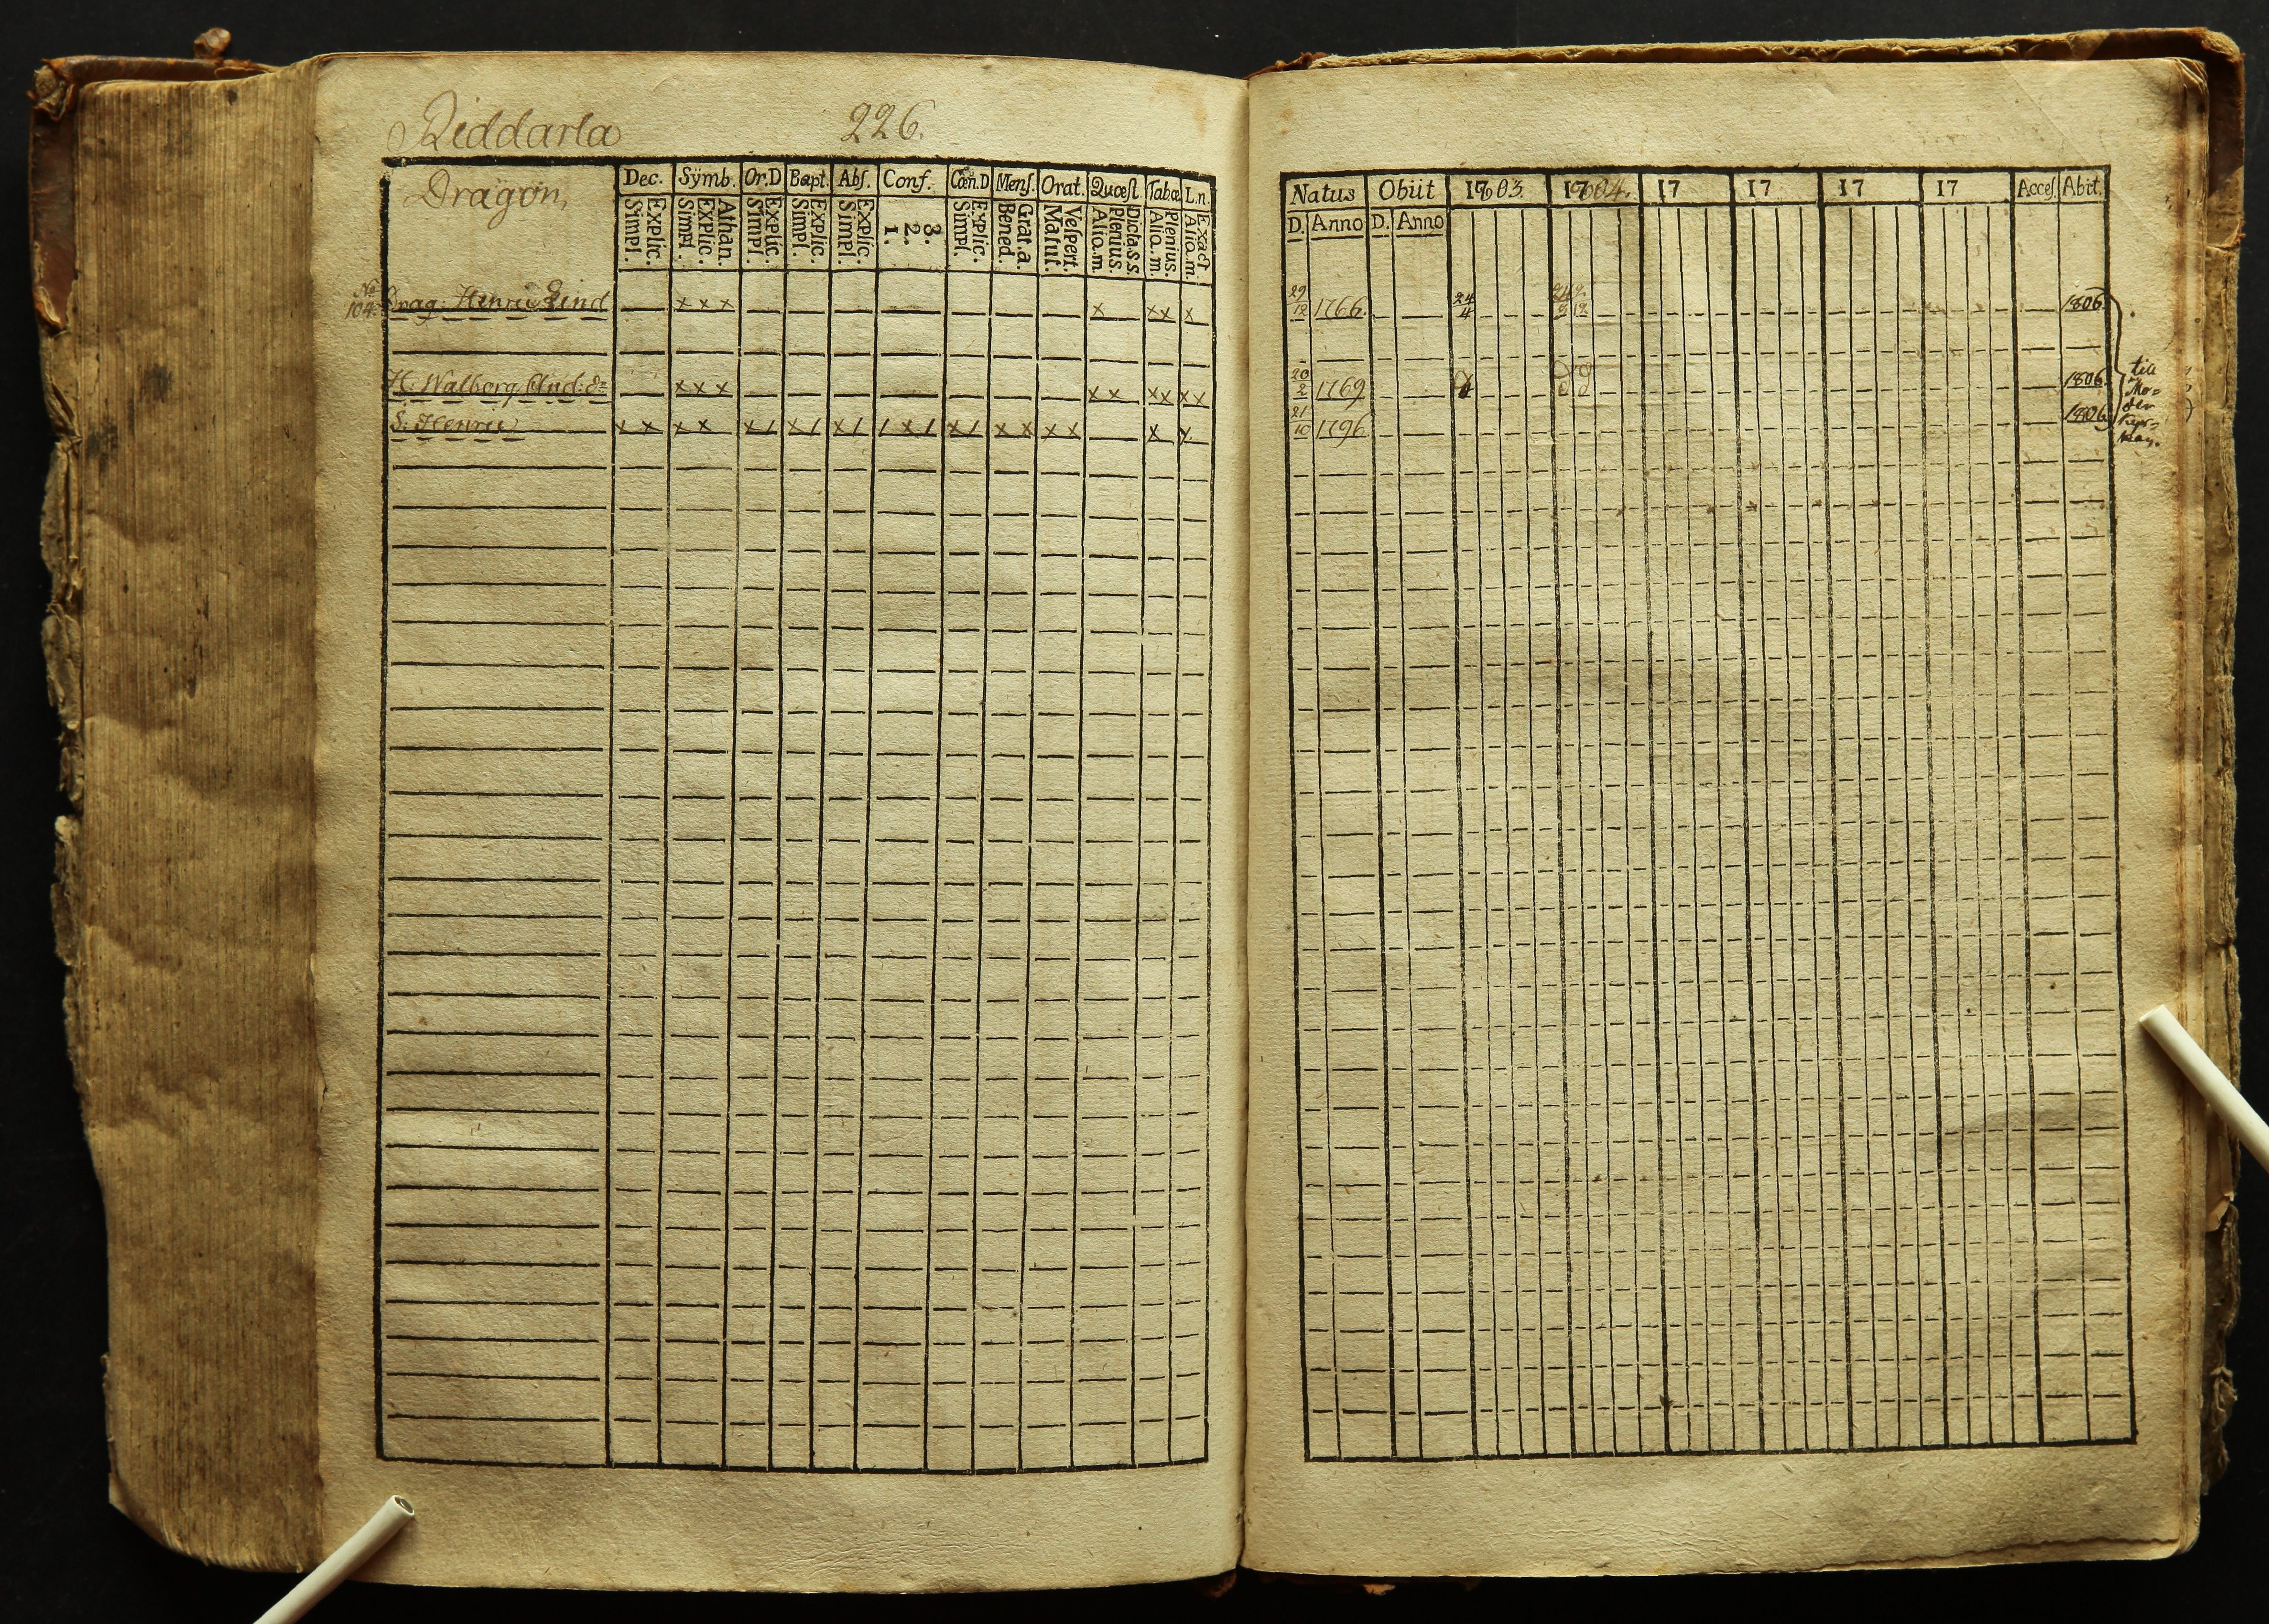 Riddarla 226.
Dragon,
Dec. Sÿmb. Or.D Bapt. Abſ. Conf. Cœn.D Menſ. Orat. Quœſt. Tab.œ L.n.
Explic. Simpl. Athan. Explic. Simpl. Explic. Simpl. Explic. Simpl. Explic. Simpl. 3. 2. 1. Explic. Simpl. Grat.a. Bened. Veſpert. Matut. Dicta.s.s. Plenius. Aliq.m. Plenius. Aliq.m. Exact Aliq.m.
No 104. Drag: Henric Lind x x x x x x x
H: Walborg And: dr x x x x x x x x x
S: Henric x x x x x / x / x / / x / x / x x x x x x
Natus Obiit 1803. 1804. 17 17 17 17 Acceſ. Abit.
D. Anno D. Anno
29/12 1766. 24/4 1806.
20/2 1769 1806.
21/10 1796 1806.
till